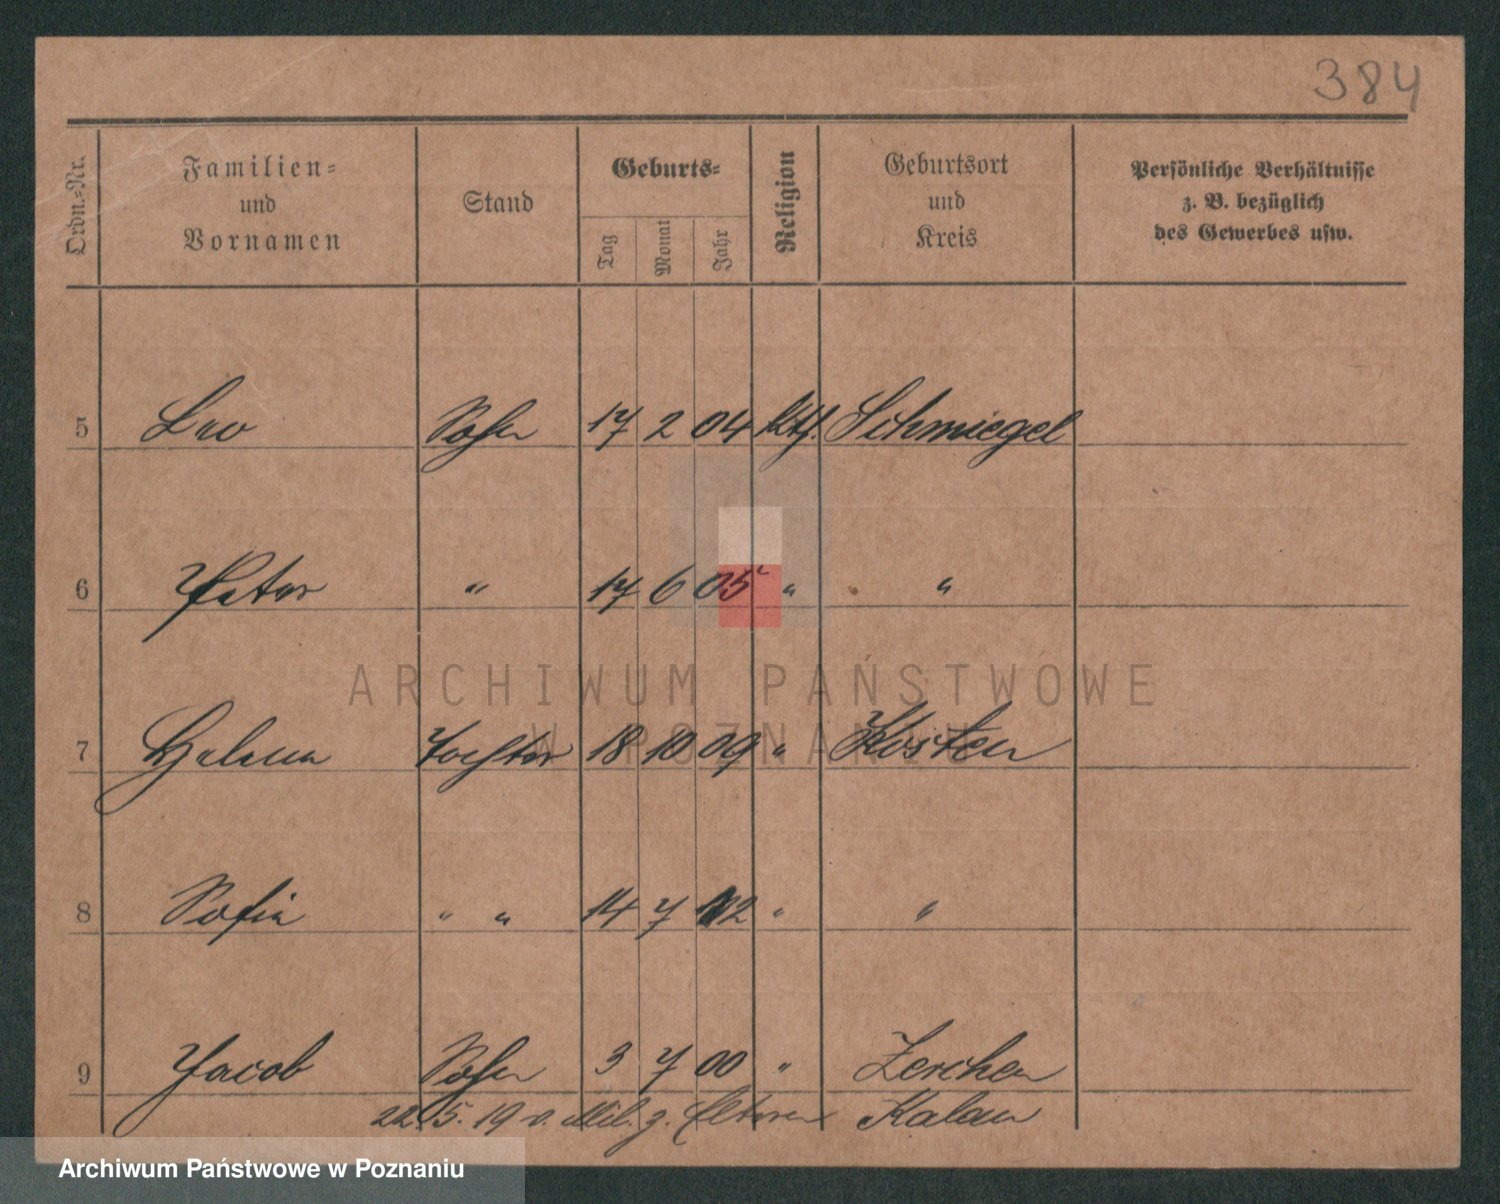 384
Ordn.-Nr. Familien- und Vornamen Stand Geburts- Tag Monat Jahr Religion Geburtsort und Kreis Persönliche Verhältnisse z. B. bezüglich des Gewerbes usw.
5 Leo Sohn 17 2 04 kth. Schmiegel
6 Peter " 17 6 05 " "
ARCHIWUM PAŃSTWOWE
W POZNANIU
7 Helena Tochter 18 10 09 " Kosten
8 Sofia " " 14 7 12 " "
9 Jacob Sohn 3 7 00 " Zerchen
22.5.19 v. Mil. z. Eltern Kalau
Archiwum Państwowe w Poznaniu